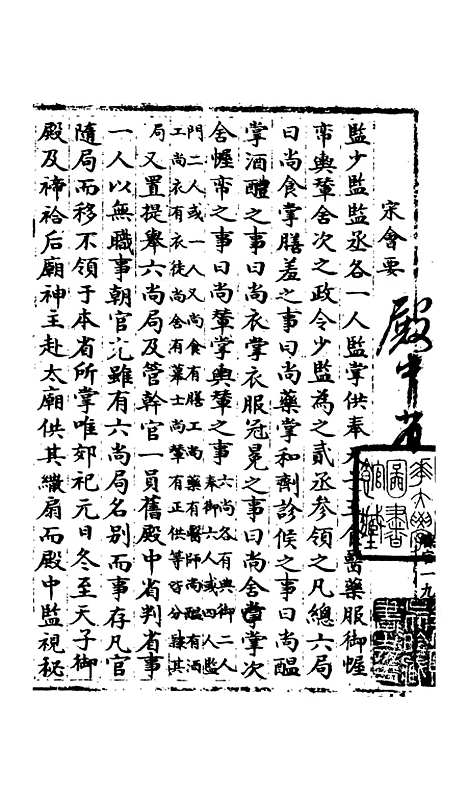 宋會要
殿中省
監少監監丞各一人監掌供奉天子玉食醫藥服御幄
帟輿輦舍次之政令少監為之貳丞參領之凡總六局
曰尚食掌膳羞之事曰尚藥掌和劑診候之事曰尚醞
掌酒醴之事曰尚衣掌衣服冠冕之事曰尚舍掌次
舍幄帟之事曰尚輦掌輿輦之事六尚各有典御二人
奉御六人或四人監
門二人或一人又尚食有膳工尚藥有醫師尚醞有酒
工尚衣有衣徒尚舍有幕士尚輦有正供等各分隸其
局又置提舉六尚局及管幹官一員舊殿中省判省事
一人以無職事朝官充雖有六尚局名別而事存凡官
隨局而移不領于本省所掌唯郊祀元日冬至天子御
殿及禘祫后廟神主赴太廟供其繖扇而殿中監視秘
一九